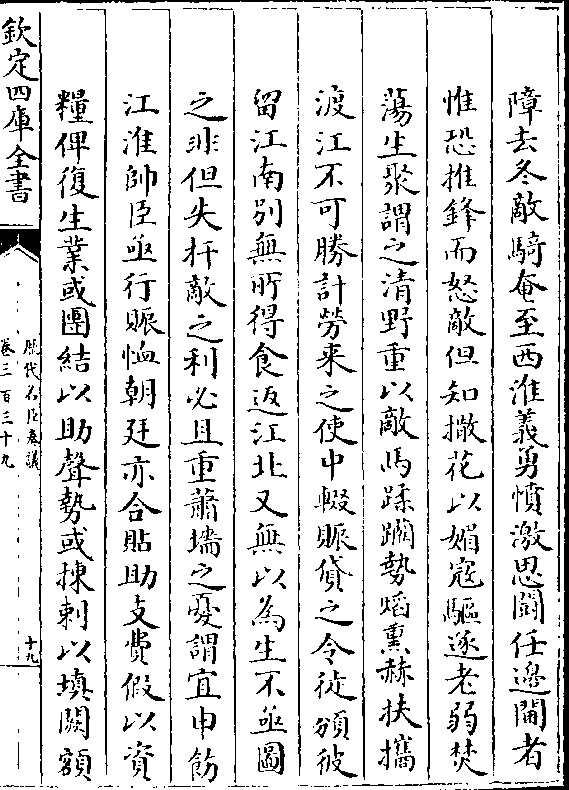 障去冬敵騎奄至西淮義勇憤激思鬭任邊閫者
惟恐推鋒而怒敵但知撒花以媚寇驅逐老弱焚
蕩生聚謂之清野重以敵馬蹂躪勢熖熏赫扶攜
渡江不可勝計勞來之使中輟賑貸之令徒頒彼
留江南别無所得食返江北又無以為生不亟圖
之非但失扞敵之利必且重蕭墻之憂謂宜申飭
江淮帥臣亟行賑恤朝廷亦合貼助支費假以資
糧俾復生業或團結以助聲勢或揀刺以填闕額
欽定四庫全書
歷代名臣奏議
卷三百三十九
十九